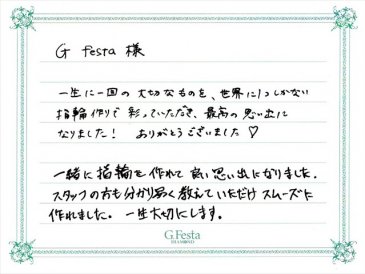 G festa 様
一生に一回の大切なものを、世界に1つしかない
指輪作りで彩っていただき、最高の思い出に
なりました! ありがとうございました♡
一緒に指輪を作れて良い思い出になりました。
スタッフの方も分かり易く教えていただけスムーズに
作れました。一生大切にします。
G.Festa
DIAMOND